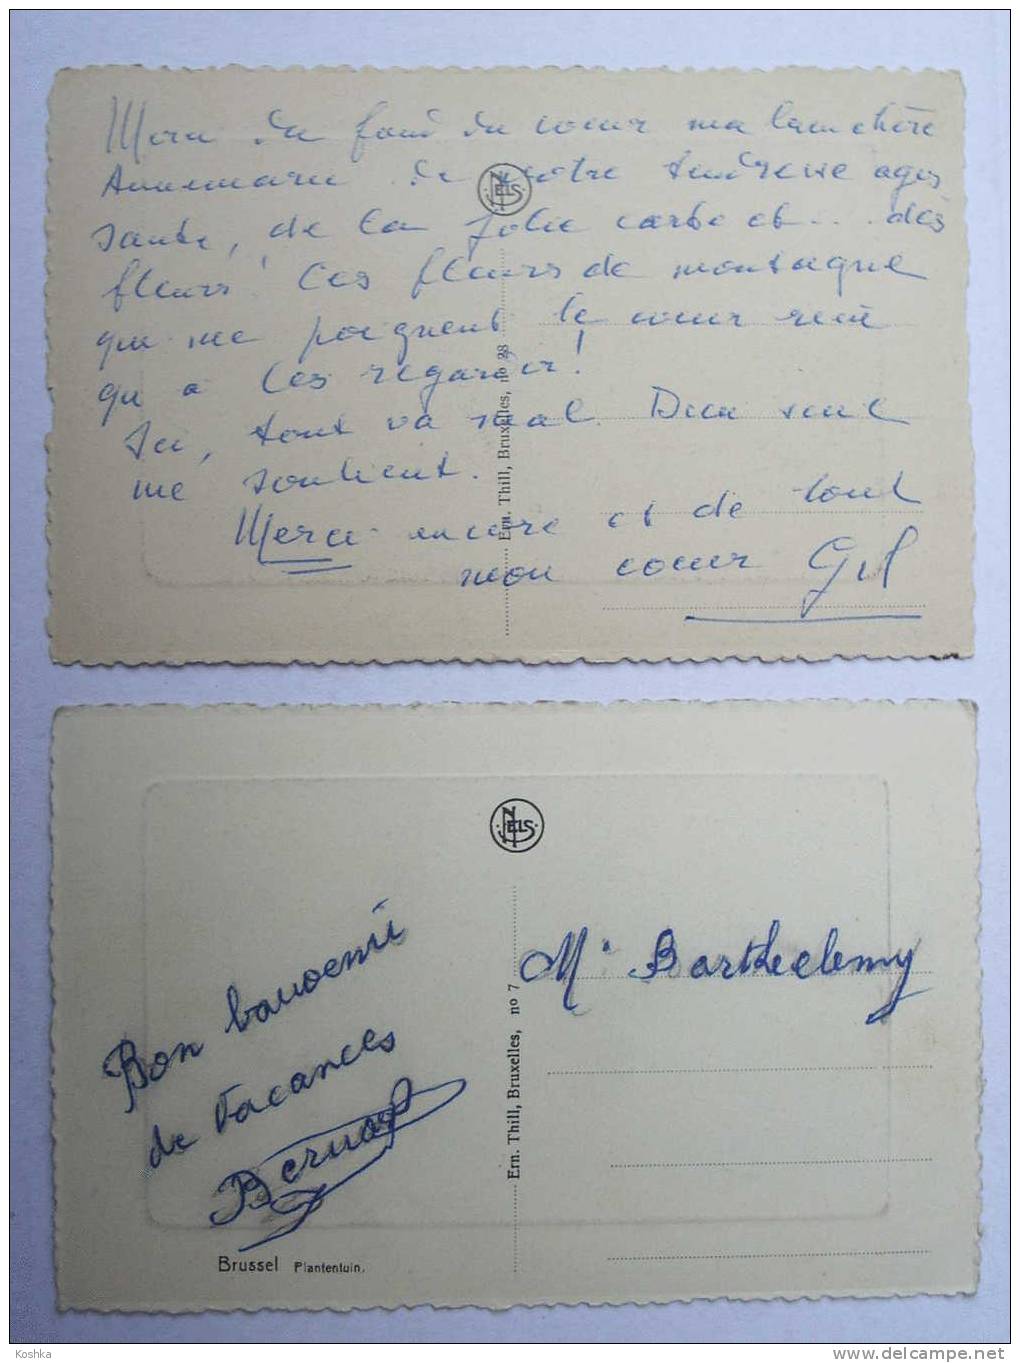 Merci du fond du coeur ma bien chère
Annemarie de votre tendresse agis
sante, de la jolie carte et... des
fleurs! Ces fleurs de montagne
qui me poignent le coeur rien
qu'a les regarder!
Ici, tout va mal. Dieu seul
me soutient.
Merci encore et de tout
mon coeur Gil
NELS
Ern. Thill, Bruxelles, no 38
NELS
Bon
de Vacances
Bernard
Mr Barthelemy
Ern. Thill, Bruxelles, no 7
Brussel Plantentuin.
Koshka
www.delcampe.net